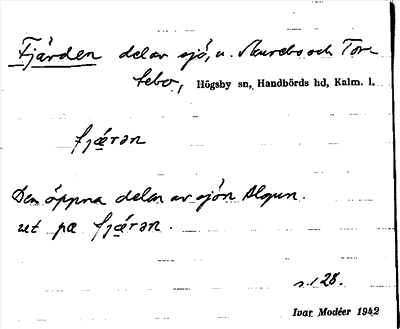 Fjärden del av sjö, u. Naurebo och Tore-
tebo, Högsby sn, Handbörds hd, Kalm. l.
fjǽrən
Den öppna delen av sjön Algun.
ut pa fjǽrən.
s. 128.
Ivar Modéer 1942